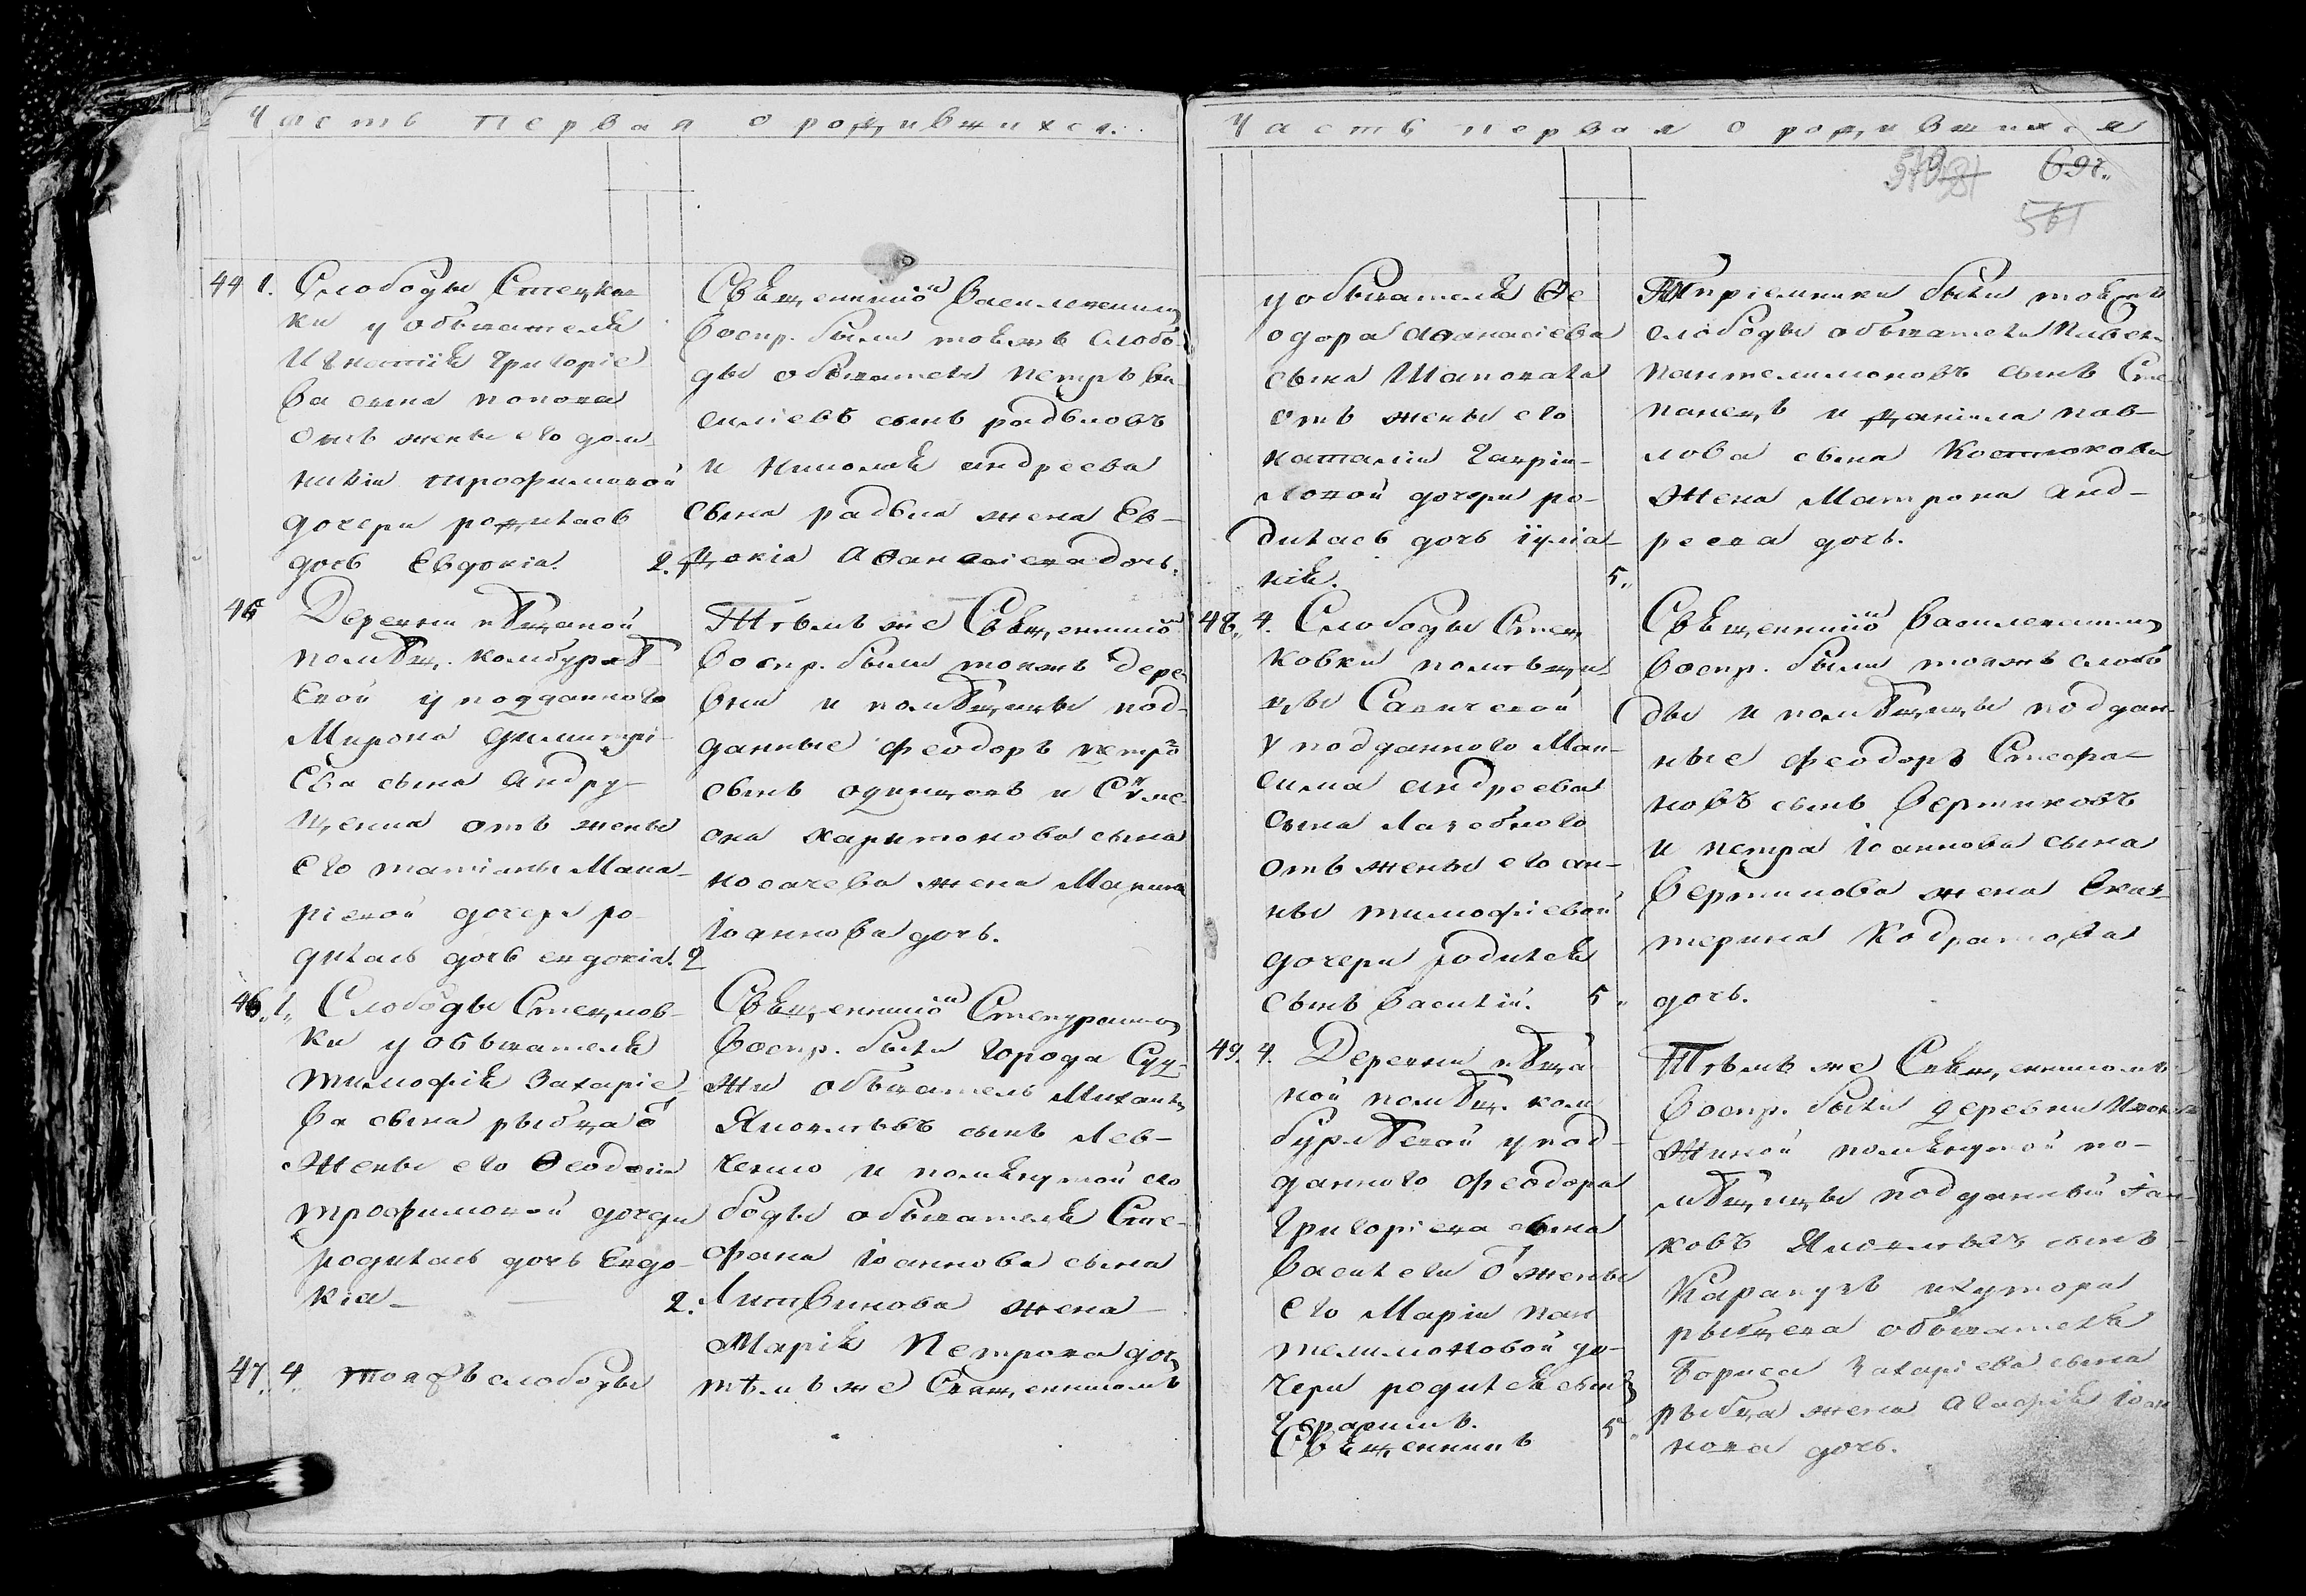 Часть первая о родившихся.
44 1. Слободы Стецков-
ки у обывателя
Игнатія Григоріе
ва сына попова
отъ жены его дом-
никіи трофимовой
дочери родилась
дочь Евдокія. 2.
Священникомъ Василевскимъ
Воспр. были тоежъ слобо-
ды обыватели петръ ва-
силіевъ сынъ радьковъ
и николая андреева
сына жена Ев-
докія Аѳанасіева дочь.
45 Деревни
помѣщ.
у подданного
Мирона димитрі
Ева сына Андру-
щенка отъ жены
его татіаны Мака-
ріевой дочери ро-
дилась дочь евдокія. 2
Тѣмъ же Священникомъ
Воспр. были тоежъ дере
вни и помѣщицы под-
данные феодоръ петро
сынъ одинцовъ и Сѵме-
она харитонова сына
косачева жена Марина
іоаннова дочь.
46. 1. Слободы Стецков-
ки у обывателя
тимофея Захаріе
ва сына рыбца ѿ
Жены его Ѳеодосіи
трофимовой дочери
родилась дочь Евдо-
кіа 2.
Священникомъ
Воспр. были города Суд-
жи обыватель Михаилъ
Яковлевъ сынъ Лев-
ченко и помянутой сло
боды обывателя Сте-
фана іоаннова сына
Литвинова жена
Марія Петрова дочь
47. 4. тоежъ слободы
тѣмъ же Священникомъ
Часть первая о родившихся
697.
561
у обывателя Ѳе
одора Аѳанасіева
сына Шаповала
отъ жены его
наталіи Гаврии-
ловой дочери ро-
дилась дочь іуліа-
нія. 5.
пріемники были тоежъ
слободы обыватели Павелъ
пантелимоновъ сынъ Сте
паненъ и даніила пав-
лова сына Костюкова
Жена Матрона Анд-
реева дочь.
48. 4. Слободы Стец
ковки помѣщи-
цы Савичевой
у подданного Мак-
сима андреева
сына Лазебного
отъ жены его ан-
ны тимофіевой
дочери родился
сынъ Василій. 5.
Священникомъ Василевскимъ
Воспр. были тоежъ слобо
ды и помѣщицы поддан-
ные феодоръ Стефа-
новъ сынъ Вертиковъ
и петра іоаннова сына
Вертикова жена Ека-
терина Кодратова
дочь.
49. 4. Деревни
помѣщ. ком
у под-
данного феодора
Григоріева сына
Василева ѿ жены
Его Маріи пан
телимоновой до-
чери родился сынъ
Герасимъ. 5.
Священникъ
Тѣмъ же Священникомъ
Воспр. были деревни
помянутой по-
мѣщицы подданный Іа-
ковъ Яковлевъ сынъ
Карапузъ и хутора
рыбцева обывателя
Бориса Захаріева сына
рыбца жена Агафія іоан
нова дочь.